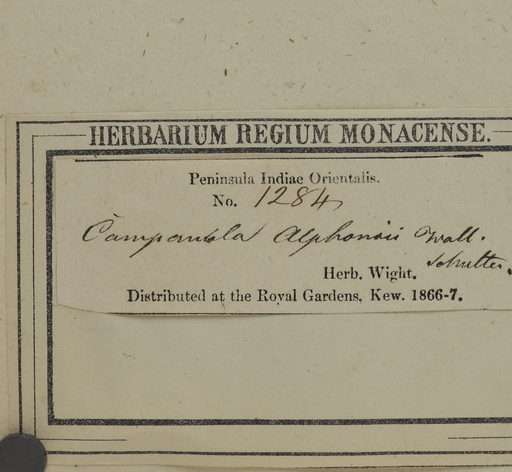 HERBARIUM REGIUM MONACENSE.
Peninsula Indiae Orientalis.
No. 1284
Campanula Alphonsii Wall.
Herb. Wight.
Distributed at the Royal Gardens, Kew. 1866-7.